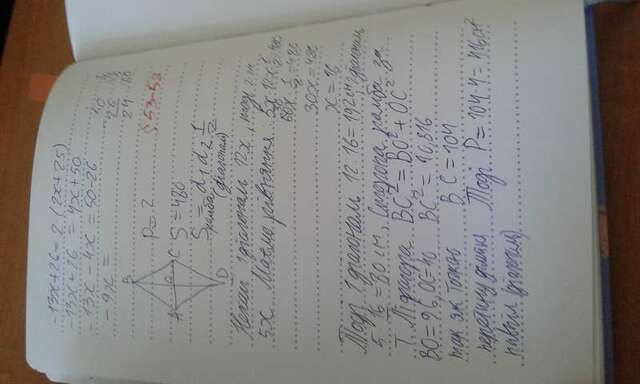 -13x+26=2 (2x+25)
-13x+26 = 4x+50
-13x-4x = 50-26
-9x =
50
26
24
S 53-53
B
A
O
C
D
P=?
S=480
S ромба = d₁ d₂ 1/2
(діагоналі)
Нехай 1 діагональ 12x, тоді 2
5x. Маємо рівняння: 5x·12x 1/2=480
60x 1/2=480
30x=480
x=16
Тоді 1 діагональ 12·16=192см, діагональ
5·16=80см, Сторона ромба за
Т. Піфагора BC²=BO²+OC²
BO=96, OC=40 BC²=10,816
так як точкою BC=104
перетину ділиться Тоді P=104·4=416см²
навпіл (діагоналі)